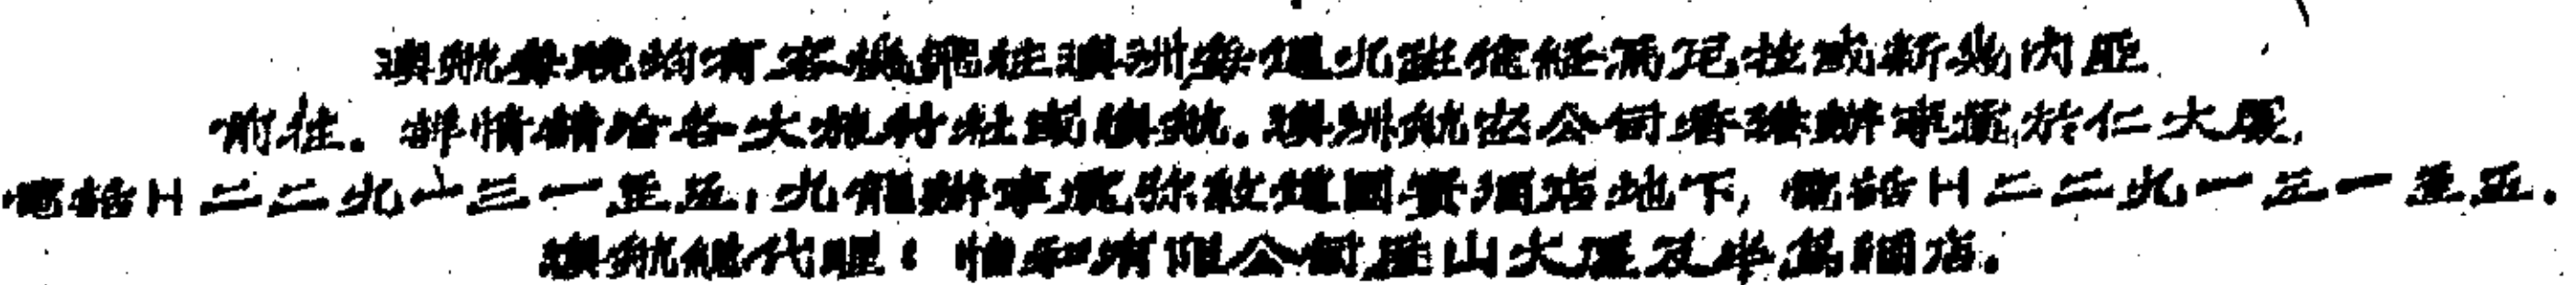 澳航每晚均有客機飛往澳洲，每週九班途經馬尼拉或新幾內亞
前往。詳情請洽各大旅行社或澳航。澳洲航空公司香港辦事處於仁大廈，
電話H二二九一三一至五，九龍辦事處彌敦道國賓酒店地下，電話H二二九一三一至五。
澳航總代理：怡和有限公司歷山大廈及半島酒店。